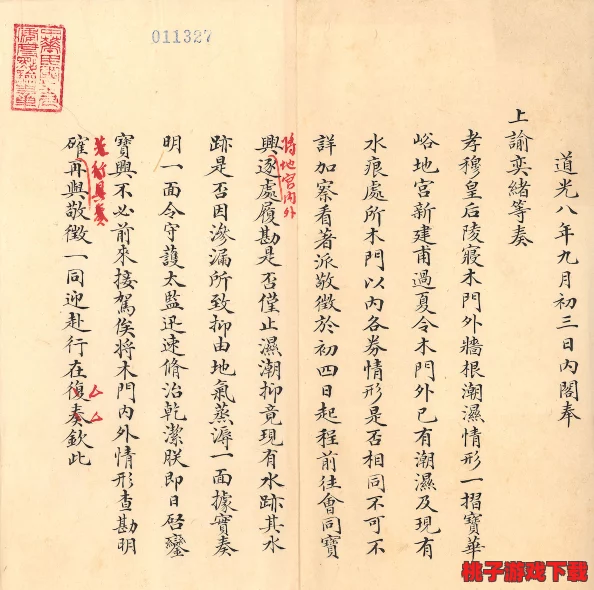 011327
道光八年九月初三日內閣奉
上諭奕緒等奏
孝穆皇后陵寢木門外牆根潮濕情形一摺寶華
峪地宮新建甫過夏令木門外已有潮濕及現有
水痕處所木門以內各券情形是否相同不可不
詳加察看著派敬徵於初四日起程前往會同寶
興逐處履勘是否僅止濕潮抑竟現有水跡其水
將地宮內外
跡是否因滲漏所致抑由地氣蒸溽一面據實奏
明一面令守護太監迅速脩治乾潔朕即日啓鑾
寶興不必前來接駕俟將木門內外情形查勘明
確再與敬徵一同迎赴行在復奏欽此
桃子游戏下载